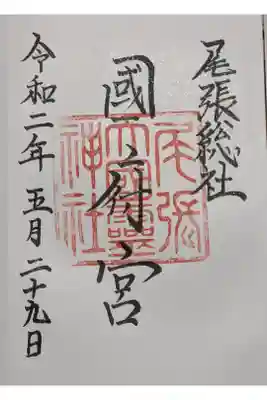 尾張総社
國府宮
尾張大國霊神社
令和二年五月二十九日